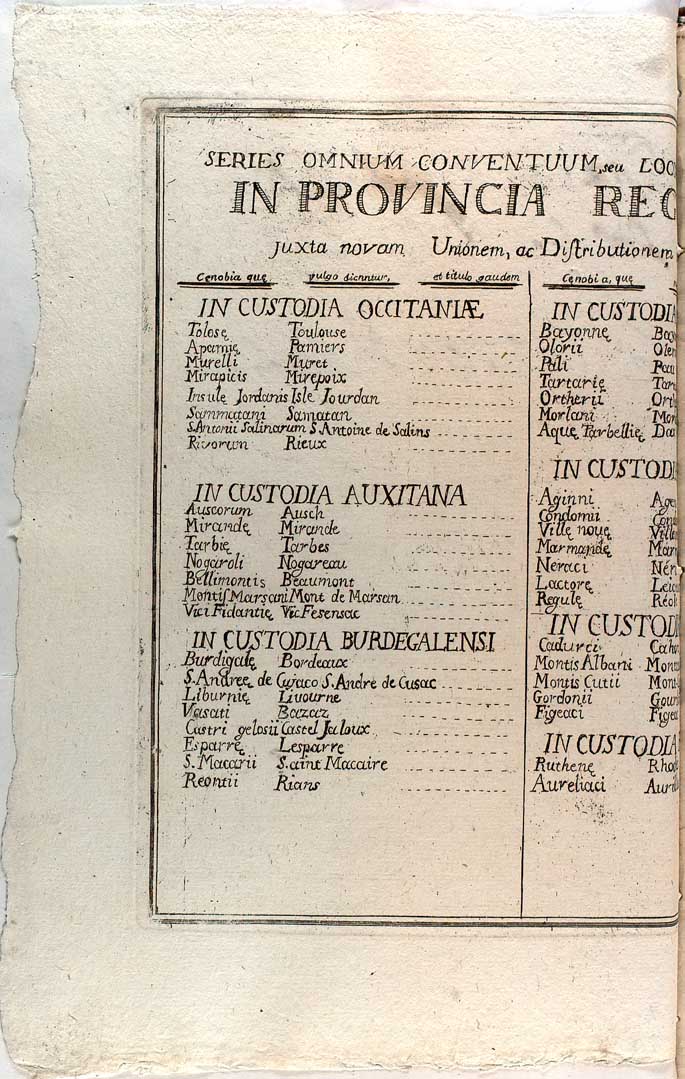 SERIES OMNIUM CONVENTUUM, seu LOC
IN PROVINCIA REG
Juxta novam Unionem, ac Distributionem
Cenobia quę vulgo dicuntur, et titulo gaudem
IN CUSTODIA OCCITANIÆ
Tolosę Toulouse
Apamię Pamiers
Murelli Muret
Mirapicis Mirepoix
Insulę Jordanis Isle Jourdan
Sammatani Samatan
S. Antonii Salinarum S. Antoine de Salins
Rivorum Rieux
IN CUSTODIA AUXITANA
Auscorum Ausch
Mirandę Mirande
Tarbię Tarbes
Nogaroli Nogareau
Bellimontis Beaumont
Montis Marsani Mont de Marsan
Vici Fidantię Vic Fesensac
IN CUSTODIA BURDEGALENSI
Burdigalę Bordeaux
S. Andreę de Cujaco S. André de Cusac
Liburnię Livourne
Vasati Bazaz
Castri gelosii Castel Jaloux
Esparrę Lesparre
S. Macarii Saint Macaire
Reontii Rians
Cenobia, quę
IN CUSTODIA
Bayonnę Bay
Olorii Oler
Pali Pau
Tartarię Tar
Ortherii Orth
Morlani Mor
Aquę Tarbellię Dac
IN CUSTODI
Aginni Age
Condomii Con
Villę nouę Ville
Marmandę Mar
Neraci Nér
Lactorę Leic
Regulę Réol
IN CUSTODI
Cadurci Caho
Montis Albani Mont
Montis Cutii Mont
Gordonii Gour
Figeaci Figea
IN CUSTODIA
Ruthenę Rho
Aureliaci Auril